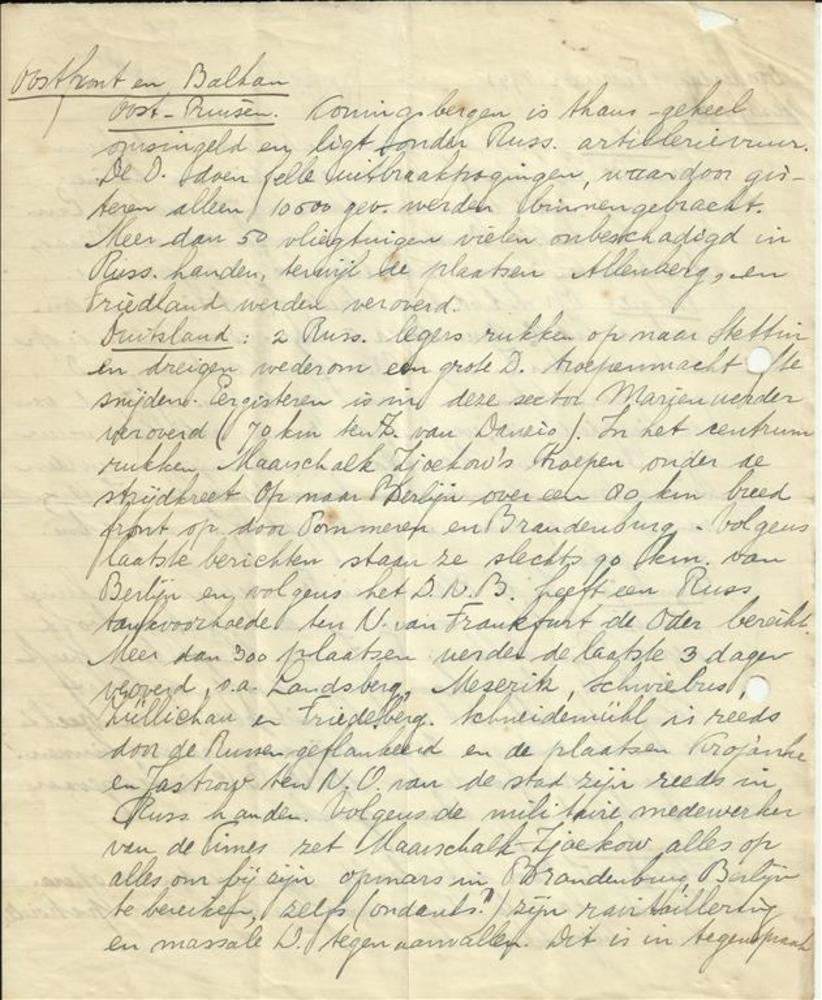 Oostfront en Balkan
Oost-Pruisen. Koningsbergen is thans geheel
omsingeld en ligt onder Russ. artillerievuur.
De D. doen felle uitbraakpogingen, waardoor gis-
teren alleen 10500 gev. werden binnengebracht.
Meer dan 50 vliegtuigen vielen onbeschadigd in
Russ. handen, terwijl de plaatsen Allenberg, en
Friedland werden veroverd.
Duitsland: 2 Russ. legers rukken op naar Stettin
en dreigen wederom een grote D. troepenmacht af te
snijden. Eergisteren is in deze sector Marienwerder
veroverd (70 km ten Z. van Danzig). In het centrum
rukken Maarschalk Zjoekow's troepen onder de
strijdkreet Op naar Berlijn over een 80 km breed
front op door Pommeren en Brandenburg. Volgens
laatste berichten staan ze slechts 90 km. van
Berlijn en volgens het D.N.B. heeft een Russ
tankvoorhoede ten N. van Frankfurt de Oder bereikt.
Meer dan 300 plaatsen werden de laatste 3 dagen
veroverd, o.a. Landsberg, Meseritz, Schwiebus,
Züllichau en Friedeberg. Schneidemühl is reeds
door de Russen geflankeerd en de plaatsen Krojanke
en Jastrow ten N.O. van de stad zijn reeds in
Russ handen. Volgens de militaire medewerker
van de Times zet Maarschalk Zjoekow alles op
alles om bij zijn opmars in Brandenburg Berlijn
te bereiken, zelfs (ondanks?) zijn ravitaillering
en massale D. tegenaanvallen. Dit is in tegenspraak